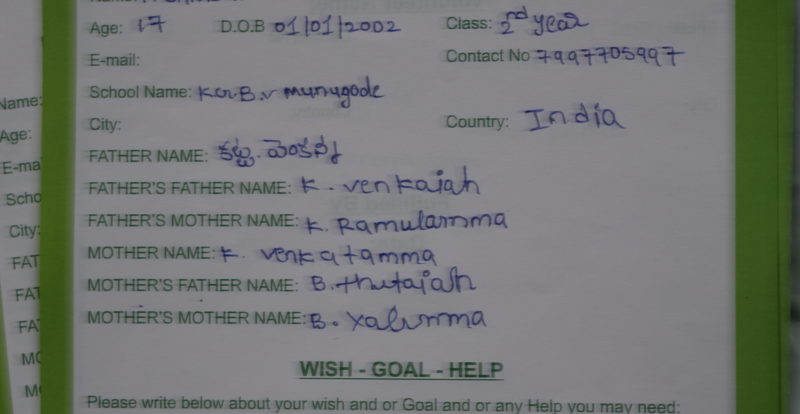 Age: 17 D.O.B 01/01/2002 Class: 2nd year
E-mail: Contact No 7997705997
Name:
School Name: KGB.V Munugode
City: Country: India
Age:
FATHER NAME:
E-ma
FATHER'S FATHER NAME: K. venkaiah
Scho
FATHER'S MOTHER NAME: K. Ramulamma
City:
MOTHER NAME: K. venkatamma
FAT
MOTHER'S FATHER NAME: B.
FAT
MOTHER'S MOTHER NAME: B.
FA
MO
WISH - GOAL - HELP
M
Please write below about your wish and or Goal and or any Help you may need: